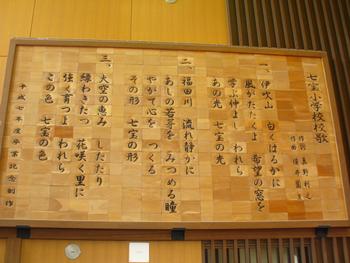 七宝小学校校歌
一、伊吹山　白くはるかに
風がたたくよ　希望の窓を
学ぶ仲よし　われら
あの光　七宝の光
二、福田川　流れ静かに
あしの若芽を　みつめる瞳
やがて心を　つくる
その形　七宝の形
三、大空の恵み　したたり
緑わきたつ　花咲く里に
強く育つよ　われら
この色　七宝の色
平成七年度卒業記念制作